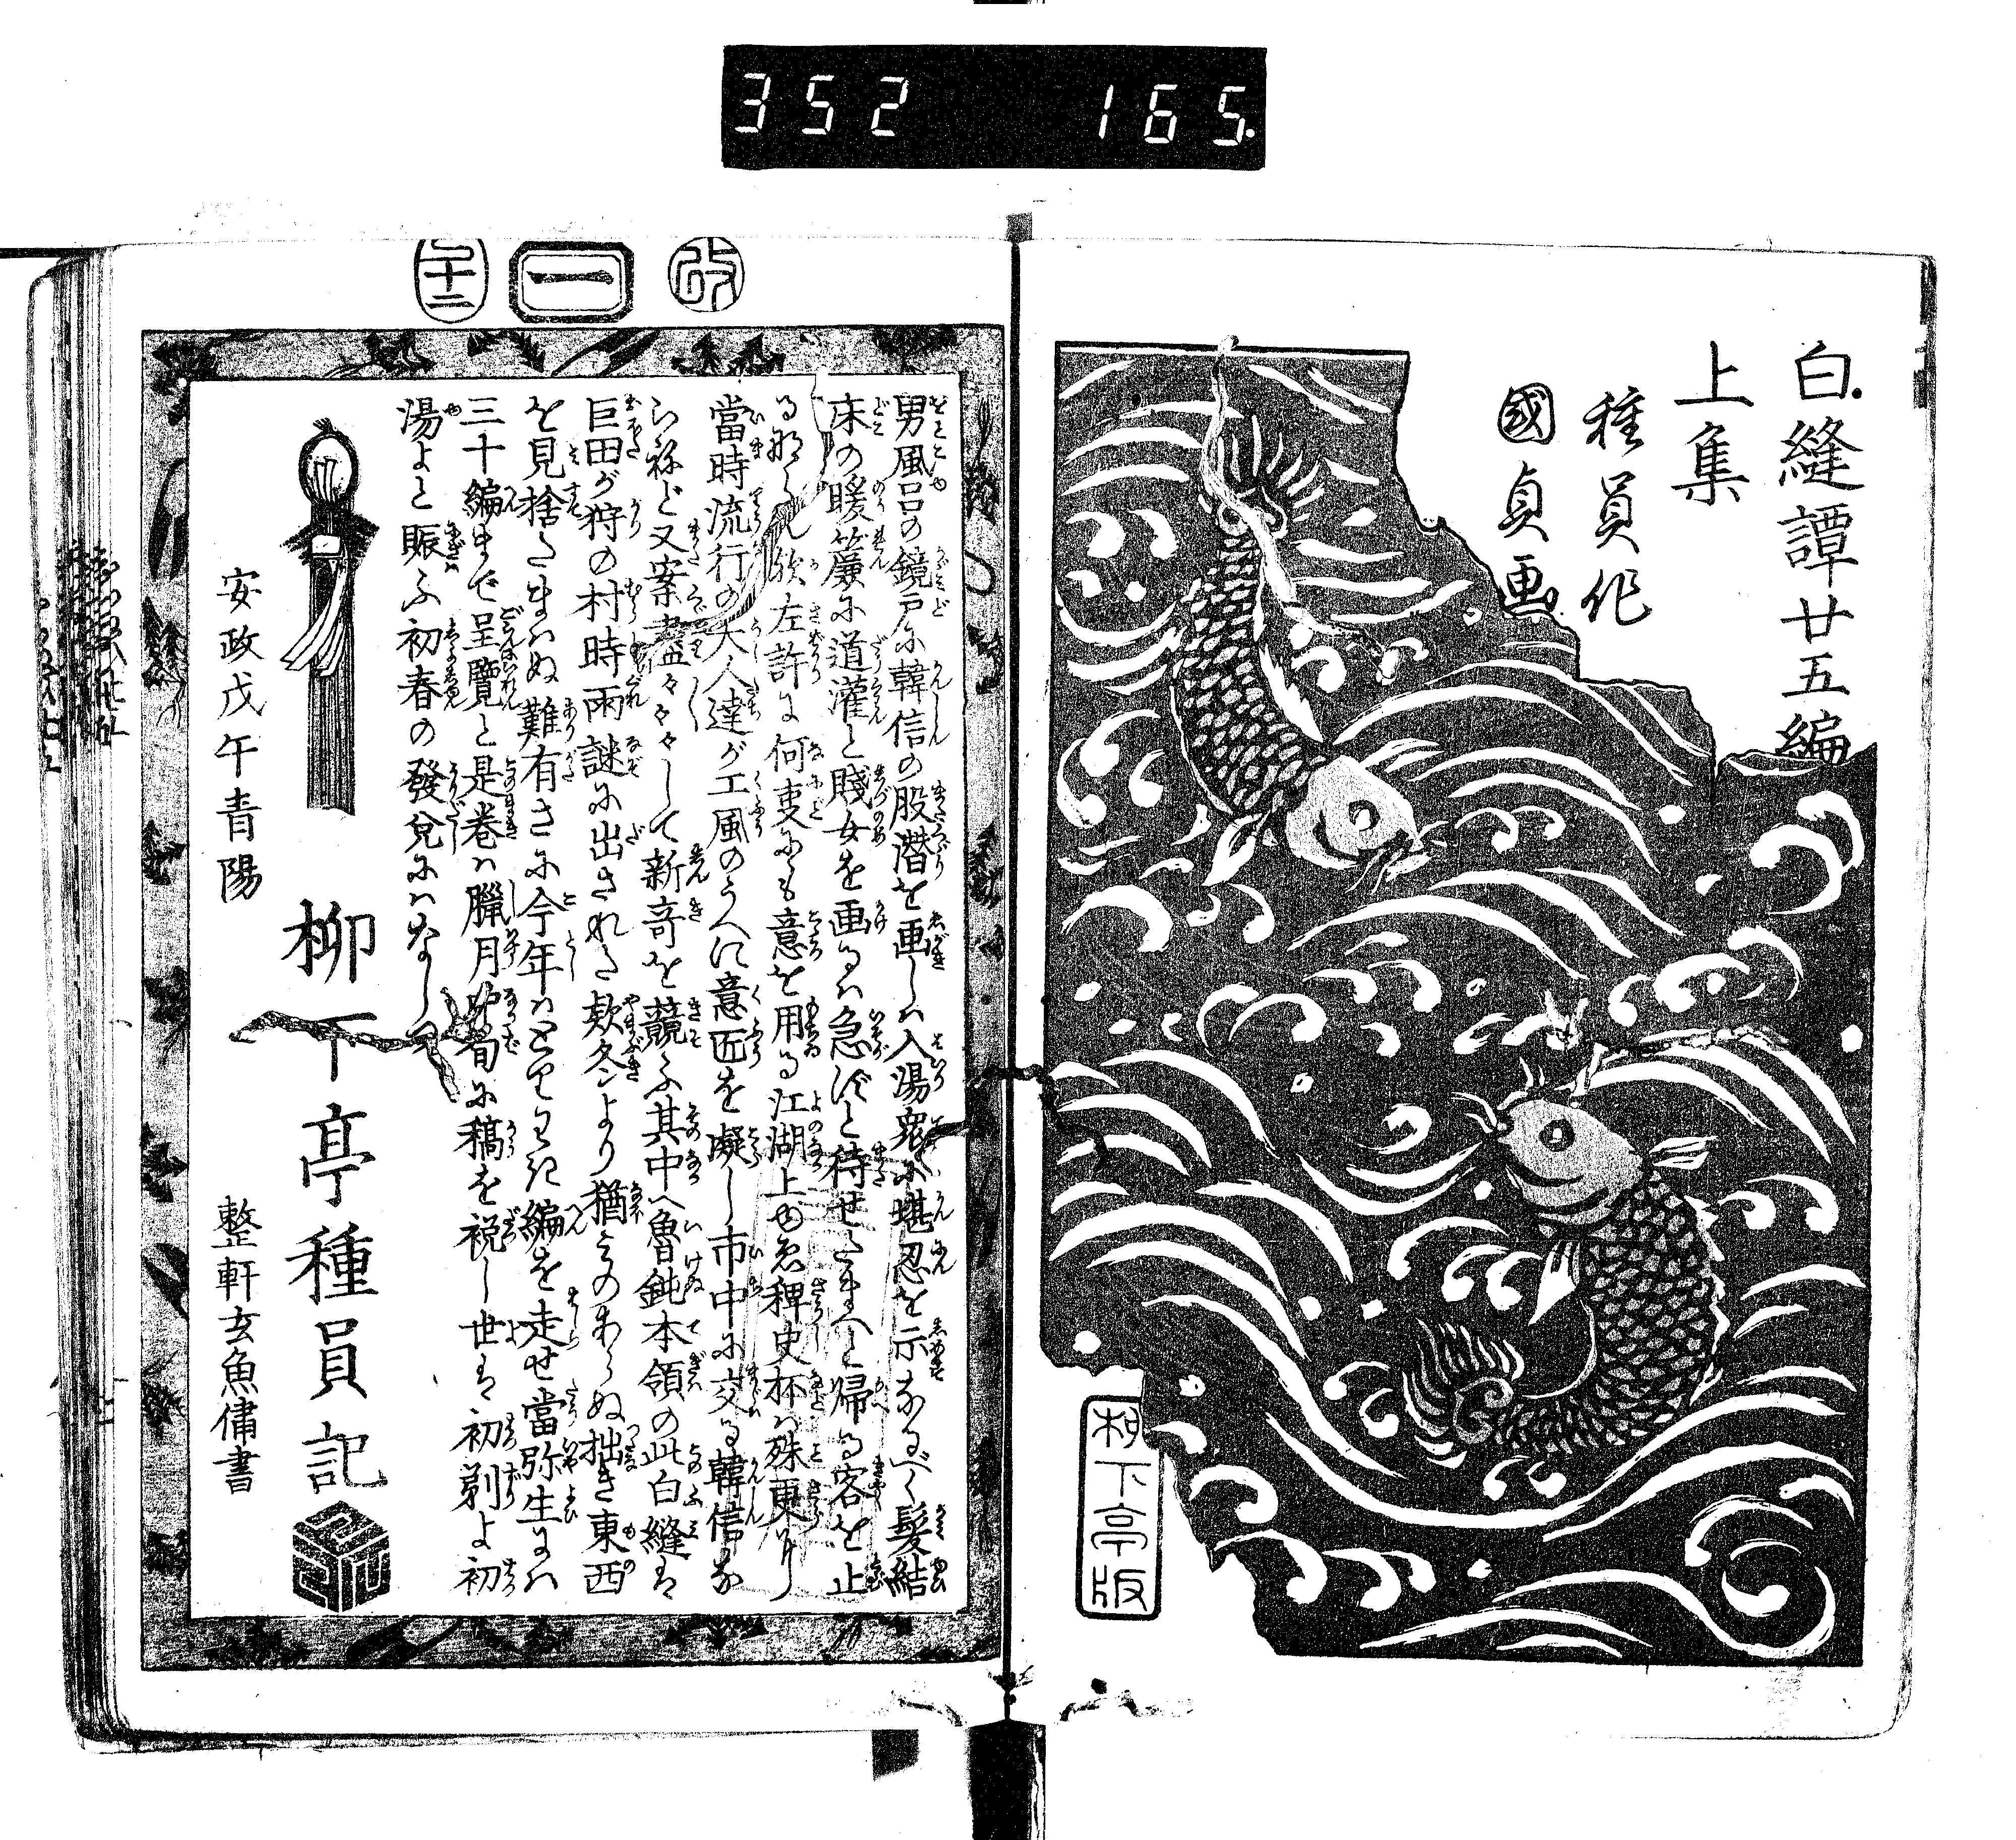 352 165
白縫譚廿五編
上集
種員作
國貞画
柳下亭版
改
一
巳十二
男風呂の鏡戸に韓信の股潜を画しハ入湯衆に堪忍を示なるべく髪結
床の暖簾に道灌と賤女を画るハ急ずと待せたまへと帰る客を止
る那らん歟左許は何吏にも意を用る江湖上ゆゑ稗史杯ハ殊更なり
當時流行の大人達が工風のうへに意匠を凝し市中に交る韓信な
らねど又案盡々々々して新竒を競ふ其中へ魯鈍本領の此白縫は
巨田が狩の村時雨謎に出された欵冬より猶みのあらぬ拙き東西
を見捨たまハぬ難有さに今年ハ編を走せ當弥生まハ
三十編まで呈覽と是巻ハ臘月初旬に稿を祝し世は初剃よ初
湯よと賑ふ初春の發兌にハなしつ
柳下亭種員記
安政戊午青陽
整軒玄魚傭書